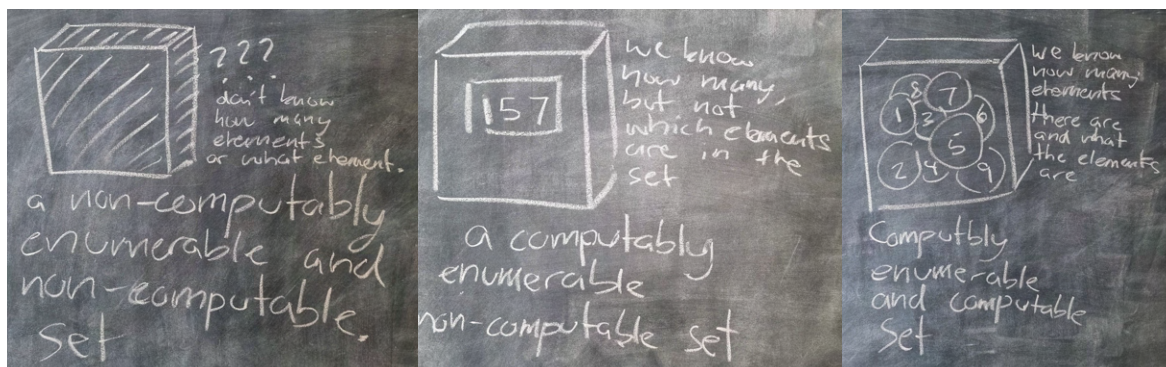 ???
don't know
how many
elements
or what element.
a non-computably
enumerable and
non-computable
set
157
we know
how many,
but not
which elements
are in the
set
a computably
enumerable
non-computable set
8 7
1 3 6
5
2 4 9
we know
how many
elements
there are
and what
the elements
are
Computbly
enumerable
and computable
Set